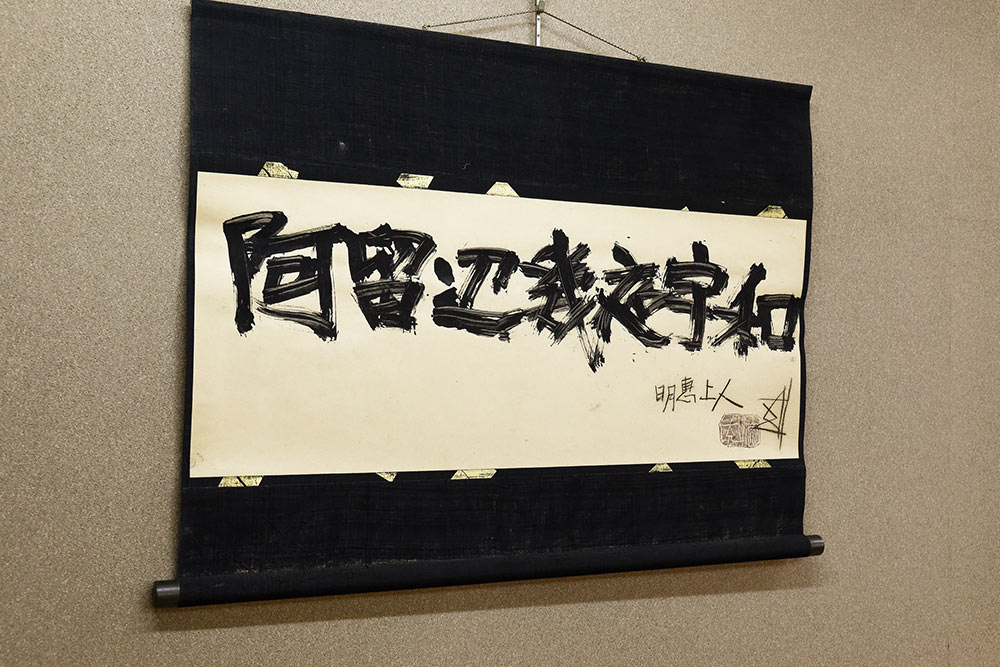 阿留辺幾夜宇和
明恵上人